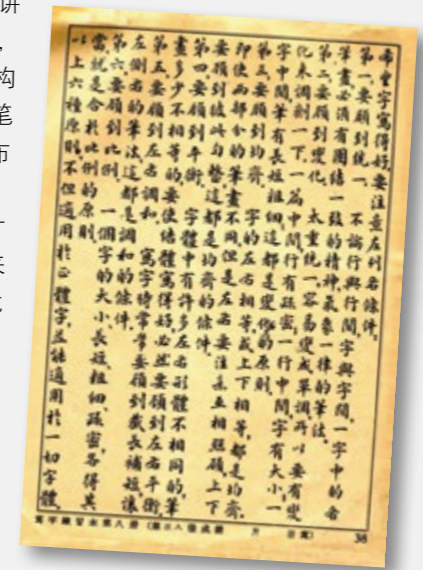 讲
，
构
笔
布
希望字寫得好,要注意左列各條件。
第一,要顧到統一。 不論行與行間,字與字間,一字中的各
筆畫,必須有團結一致的精神,氣象一律的筆法。
第二,要顧到變化。 太重統一,容易變成單調,所以要有變
化來調劑一下。一篇中間,行有疏密,一行中間,字有大小,一
字中間,筆有長短粗細,這都是變化的原則。
第三,要顧到均齊。 字的左右相等,或上下相等,都是均齊。
即使兩部分的筆畫不同,但是左右要注意互相照顧,上下
要顧到彼此勻整,這都是均齊的條件。
第四,要顧到平衡。 字體中有許多左右形體不相同的,筆
畫多少不相等的,要使結體寫得好,必然要顧到左右平衡。
第五,要顧到左右調和。 寫字時常常要顧到截長補短,讓
左側右的筆法,這都是調和的條件。
第六,要顧到比例。 一個字的大小,長短,粗細,疏密,各得其
當,就是合於比例的原則。
以上六種原則,不但適用於正體字,並能適用於一切字體。
寫字練習本第八册 (第三八張成績 月 日寫) 38